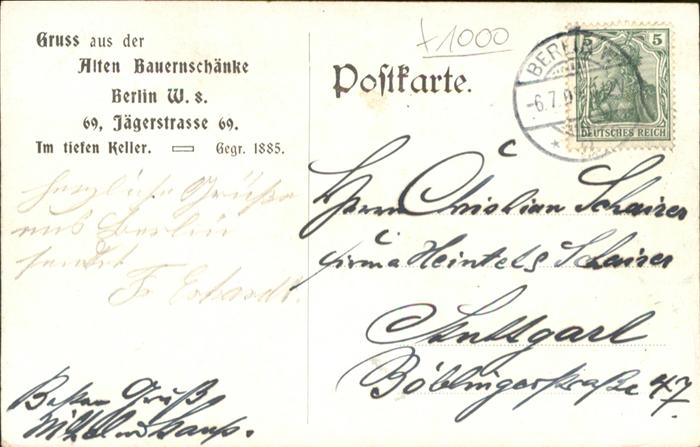 Gruss aus der
Alten Bauernschänke
Berlin W. 8.
69, Jägerstrasse 69.
Im tiefen Keller. Gegr. 1885.
Postkarte.
+1000
BERLIN W.
-6.7.0
5
DEUTSCHES REICH
herzliche Grüße
aus Berlin
sendet
Fr.
Besten Gruß
Herrn Christian Schairer
Firma Heintel & Schairer
Stuttgart
Böblingerstraße 47.